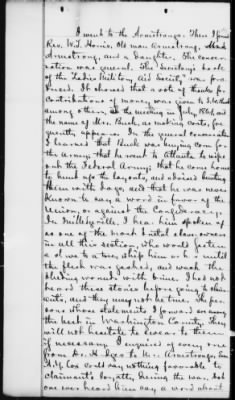 I went to the Armstrongs. There I found
Rev. W. J. Harris, Old man Armstrong, 
Armstrong, and a Daughter. The conver-
sation was general. The Secretary's book
of the "Ladies Military Aid Society" was pro-
duced. It showed that a vote of thanks for
contributions of money was given to
among others, at the meeting in July, 1861, and
the name of Mrs. Buck, as making coats, fre-
quently appears. In the general conversation
I learned that Buck was buying corn for
the Army; that he went to Atlanta to
out the Federal Army; that he came home
to hunt up the layouts, and advised hunting
them with dogs, and that he was never
known to say a word in favor of the
Union, or against the Confederacy.
In Milledgeville, I hear him spoken of
as one of the most brutal slave owners
in all this section, who would fasten
a slave to a tree, whip him or her until
the flesh was gashed, and wash the
bleeding wounds with brine. I had not
heard these stories before going to claim-
ants, and they may not be true. The per-
sons whose statements I forward are among
the best in Washington County. They
will not hesitate to swear to them
if necessary. I enquired of every one
from Dr. to Mr. Armstrong,
A. J. Cox could say nothing favorable to
claimant's loyalty during the war. No
one ever heard him say a word about